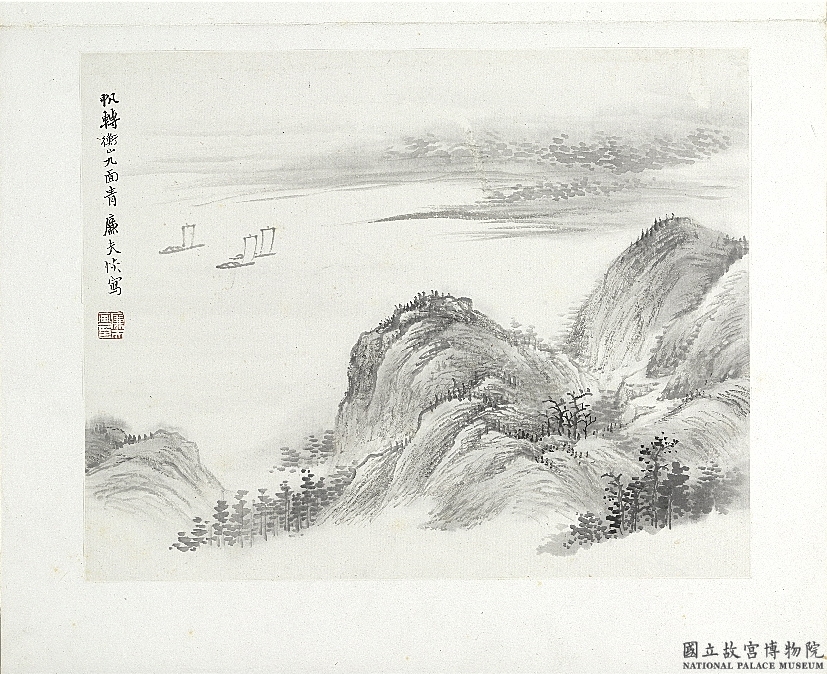 帆轉衡山九面青 廉夫恢寫
國立故宮博物院
NATIONAL PALACE MUSEUM